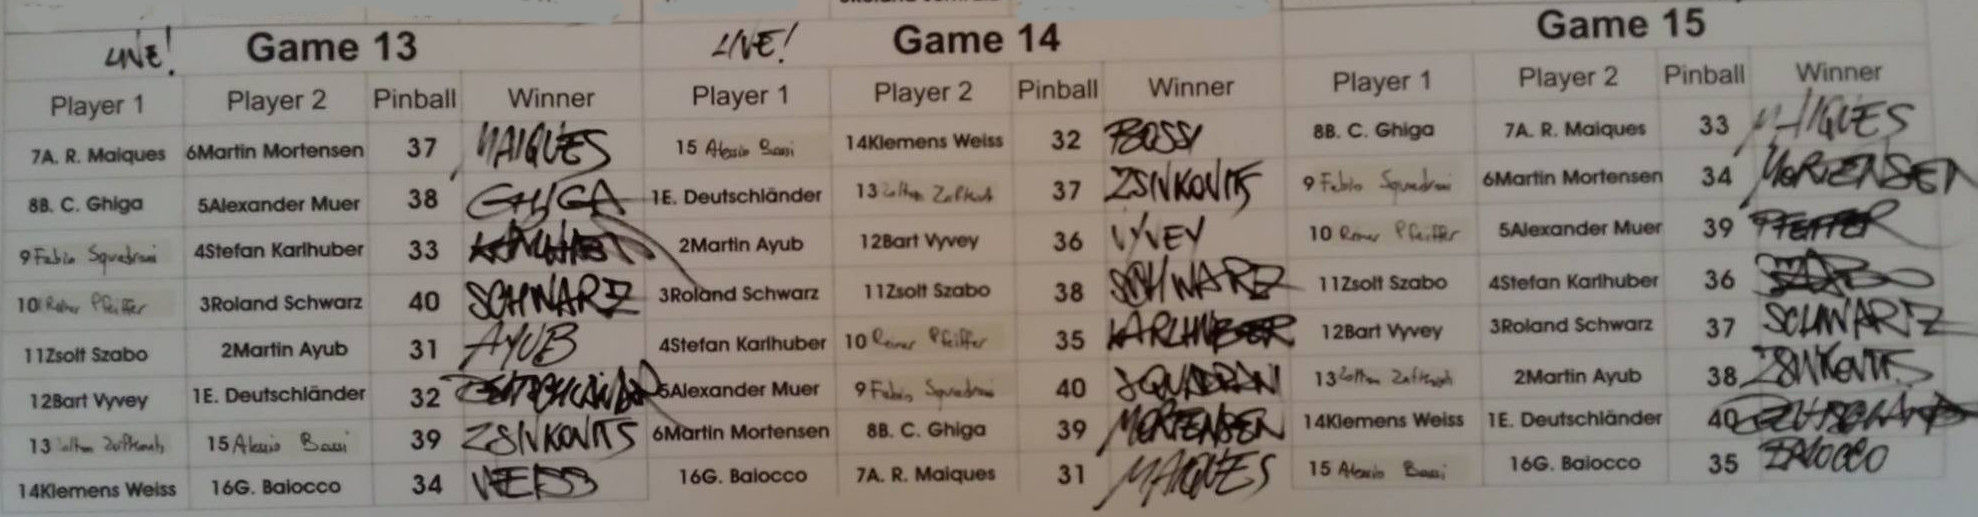 LIVE! Game 13
Player 1 Player 2 Pinball Winner
7A. R. Maiques 6Martin Mortensen 37 MAIQUES
8B. C. Ghiga 5Alexander Muer 38 GHIGA
9 Fabio Squadrani 4Stefan Karlhuber 33 KARLHUBER
10 Pfeiffer 3Roland Schwarz 40 SCHWARZ
11Zsolt Szabo 2Martin Ayub 31 AYUB
12Bart Vyvey 1E. Deutschländer 32
13 Zoltan 15 Alessio Bassi 39 ZSIVKOVITS
14Klemens Weiss 16G. Baiocco 34 WEISS
LIVE! Game 14
Player 1 Player 2 Pinball Winner
15 Alessio Bassi 14Klemens Weiss 32 BASSI
1E. Deutschländer 13 Zoltan 37 ZSIVKOVITS
2Martin Ayub 12Bart Vyvey 36 VYVEY
3Roland Schwarz 11Zsolt Szabo 38 SCHWARZ
4Stefan Karlhuber 10 Pfeiffer 35 KARLHUBER
5Alexander Muer 9 Fabio Squadrani 40 SQUADRANI
6Martin Mortensen 8B. C. Ghiga 39 MORTENSEN
16G. Baiocco 7A. R. Maiques 31 MAIQUES
Game 15
Player 1 Player 2 Pinball Winner
8B. C. Ghiga 7A. R. Maiques 33 MAIQUES
9 Fabio Squadrani 6Martin Mortensen 34 MORTENSEN
10 Pfeiffer 5Alexander Muer 39 PFEIFFER
11Zsolt Szabo 4Stefan Karlhuber 36 SZABO
12Bart Vyvey 3Roland Schwarz 37 SCHWARZ
13 Zoltan 2Martin Ayub 38 ZSIVKOVITS
14Klemens Weiss 1E. Deutschländer 40
15 Alessio Bassi 16G. Baiocco 35 BAIOCCO